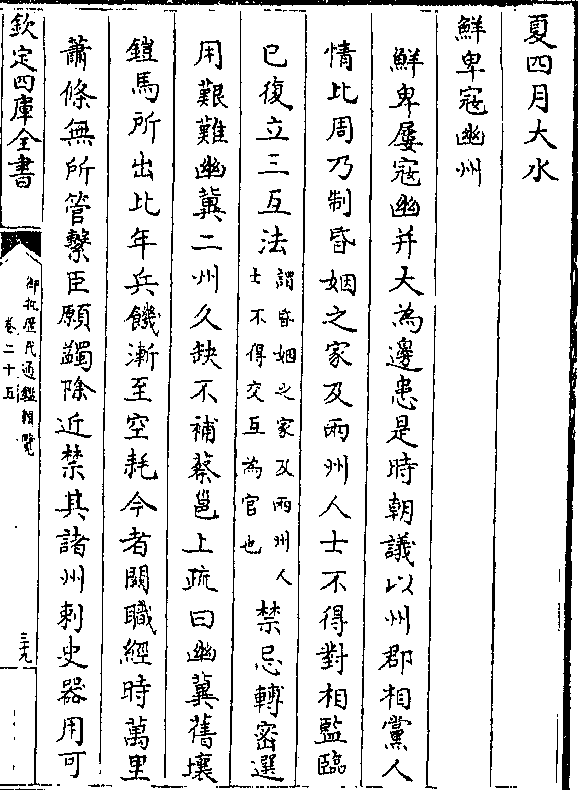 夏四月大水
鮮卑寇幽州
鮮卑屢寇幽并大為邊患是時朝議以州郡相黨人
情比周乃制昏姻之家及兩州人士不得對相監臨
已復立三互法
謂昏姻之家及兩州人
士不得交互為官也
禁忌轉密選
用艱難幽冀二州久缺不補蔡邕上疏曰幽冀舊壤
鎧馬所出比年兵饑漸至空耗今者闕職經時萬里
蕭條無所管繫臣願蠲除近禁其諸州刺史器用可
欽定四庫全書
御批歷代通鑑輯覽
卷二十五
三九